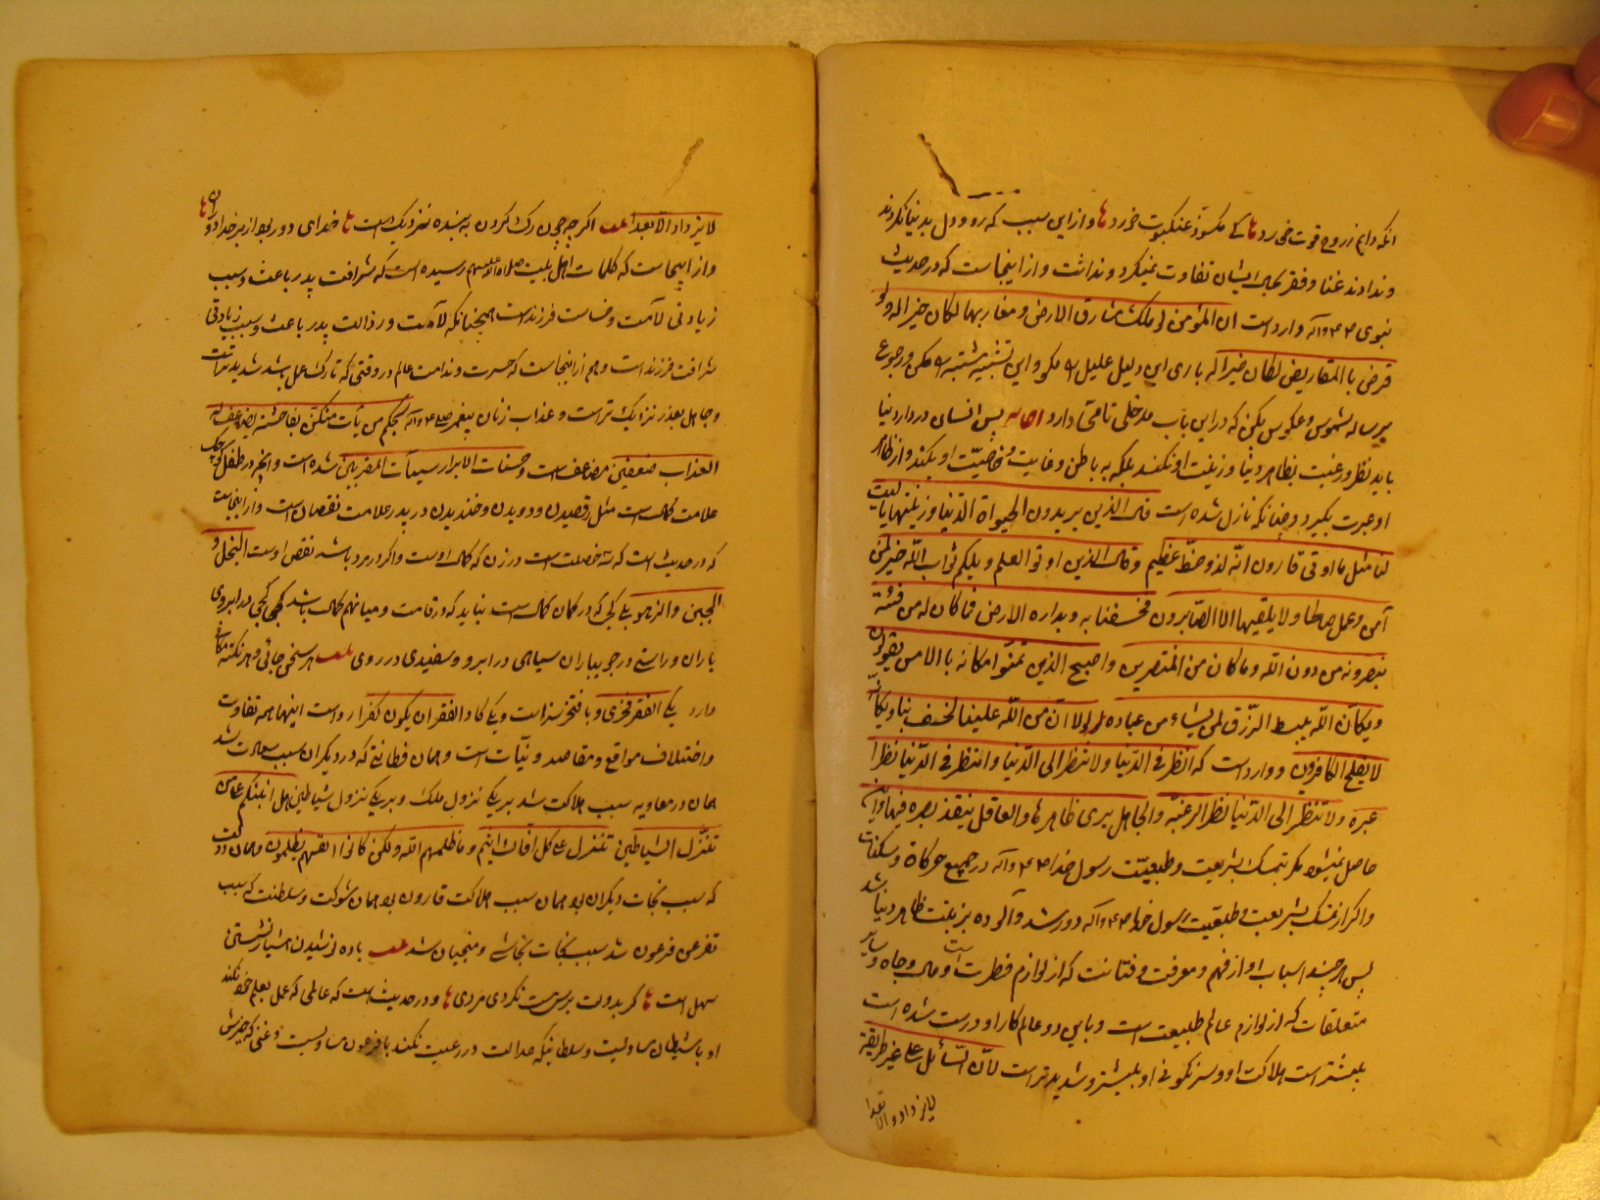 و ندادند غنا و فقر نزد ایشان تفاوت نمیکرد و نداشت و از اینجاست که در حدیث
نبوی وارد است ان المؤمن لو ملک مشارق الارض و مغاربها لکان خیرا له ولو
قرض بالمقاریض لکان خیرا له باری این دلیل علیل
پس انسان در دار دنیا
باید نظر و رغبت بظاهر دنیا و زینت او نکند بلکه به باطن و او نکند و از ظاهر
او عبرت بگیرد و چنانکه نازل شده است قال الذین یریدون الحیوة الدنیا و زینتها یا لیت
لنا مثل ما اوتی قارون انه لذو حظ عظیم و قال الذین اوتوا العلم ویلکم ثواب الله خیر لمن
آمن و عمل صالحا ولا یلقیها الا الصابرون فخسفنا به و بداره الارض فما کان له من فئة
ینصرونه من دون الله و ما کان من المنتصرین و اصبح الذین تمنوا مکانه بالامس یقولون
ویکأن الله یبسط الرزق لمن یشاء من عباده لولا ان من الله علینا لخسف بنا ویکأنه
لا یفلح الکافرون و وارد است که انظر فی الدنیا ولا تنظر الی الدنیا وانتظر فی الدنیا نظرا
عبرة ولا تنظر الی الدنیا نظر الرغبة والجاهل یری ظاهرها والعاقل ینفذ بصره فیها
حاصل نمیشود مگر بتمسک بشریعت و طبیعت رسول خدا در جمیع حرکات و سکنات
و اگر از تمسک بشریعت و طریقت رسول خدا دور شد و آلوده بزینت ظاهر دنیا شد
پس هر چند اسباب او از فهم و معرفت و فتانت که از لوازم فطرت است و مال و جاه و سایر
متعلقات که از لوازم عالم طبیعت است و باین دو عالم کار او درست شده است
بیشتر است هلاکت او و سرنگونی او بیشتر و شدیدتر است لان السائل علی غیر طریقة
لا یزداد الا بعدا
لا یزداد الا بعدا اگر چه چون رگ گردن به بنده نزدیک است خدای دور بود از بر خدا
و از اینجاست که کلمات اهل بیت علیهم رسیده است که شرافت پدر باعث و سبب
زیادتی لآمت و خساست فرزند است همچنانکه لآمت و رذالت پدر باعث و سبب زیادتی
شرافت فرزند است و هم از اینجاست که حسرت و ندامت عالم در وقتی که تارک عمل باشد شدیدتر است
و جاهل بعذر نزدیک تر است و عذاب زنان پیغمر بحکم من یأت منکن بفاحشة یضاعف له
العذاب ضعفین مضاعف است و حسنات الابرار سیئات المقربین شده است و آنچه در طفل کوچک
علامت کمال است مثل رقصیدن و دویدن و خندیدن در پدر علامت نقصان است و از اینجاست
که در حدیث است که سه خصلت است در زن که کمال اوست و اگر در مرد باشد نقص اوست البخل و
الجبن والزهو بلی کجی که در کمان کمال است نباید که در قامت و میانهم کمال باشد کهی کجی در ابروی
یاران و راستی در جویباران سیاهی در ابرو و سفیدی در روی هر سخن جائی و هر نکته مکانی
دارد یکی الفقر فخری و به افتخر سزاست و یکی کاد الفقر ان یکون کفرا رواست اینها همه تفاوت
و اختلاف مواقع و مقاصد و نیات است و همان فطانتی که در دیگران سبب سعادت شد
همان در معاویه سبب هلاکت شد بر یکی نزول ملک و بر یکی نزول شیاطین هل انبئکم علی من
تنزل الشیاطین تتنزل علی کل افاک اثیم و ما ظلمهم الله ولکن کانوا انفسهم یظلمون و همان دولت
که سبب نجات دیگران بود همان سبب هلاکت قارون بود همان شوکت و سلطنت که سبب
تفرعن فرعون شد سبب نجات نجاشی و منجیان شد باده نوشیدن هشیار نشستن
سهل است گر بدولت برسی مست نگردی مردی و در حدیث است که عالمی که عمل بعلم خود نکند
او با شیطان مساویست و سلطانیکه عدالت در رعیت نکند با فرعون مساویست و غنی که